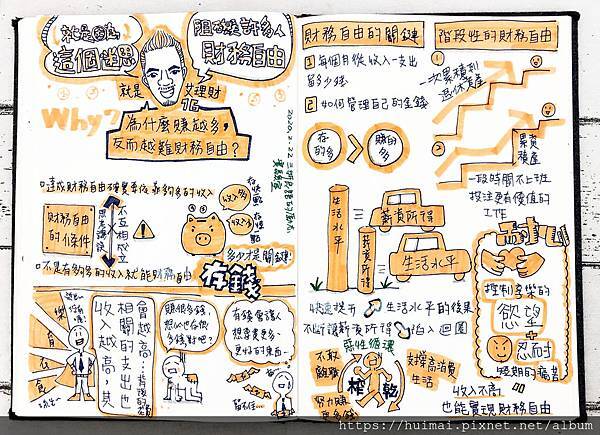 就是因為
這個迷思
阻礙許多人
財務自由
就是
艾理財
16
Why?
為什麼賺越多,
反而越難財務自由?
達成財務自由確實要依靠夠多的收入
財務自由
的條件
不互相成立
存錢
多少才是關鍵!
不是有夠多的收入就能財務自由
收入越高,其
相關的支出也
會越高…
賺很多錢,
想必也存很
多錢對吧?
有錢會讓人
想要買更多、
更好的東西…
留不住…
財務自由的關鍵
1 每個月從收入-支出
留多少錢
2 如何管理自己的金錢
存
的多
賺的
多
生活水平
薪資所得
薪資所得
生活水平
快速提升
生活水平的後果
不斷讓薪資所得
迴圈
惡性循環
不敢
離職
榨乾
支撐高消費
生活
努力賺
更多錢
階段性的財務自由
1
一次累積到
退休資產
2
累積
資產
一段時間不上班
投注更有價值的
工作
控制享樂的
慾望
+
忍耐
短期的痛苦
收入不高
也能實現財務自由
https://huimai.pixnet.net/album